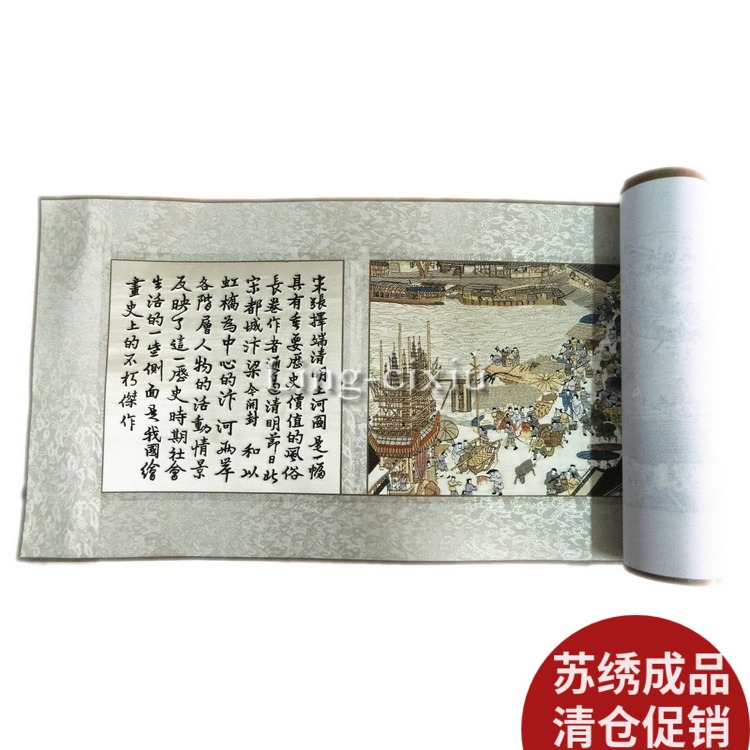 宋張擇端清明上河圖是一幅
具有重要歷史價值的風俗
長卷作者通過清明節日北
宋都城汴梁今開封 和以
虹橋為中心的汴河兩岸
各階層人物的活動情景
反映了這一歷史時期社會
生活的一些側面是我國繪
畫史上的不朽傑作
lung-cixiu
苏绣成品
清仓促销